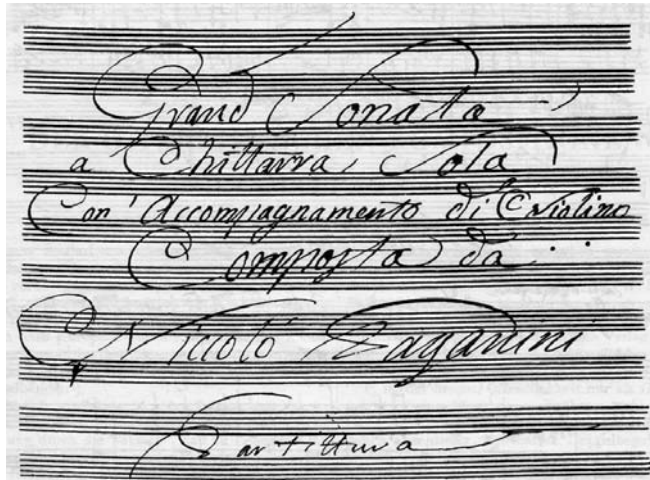 Grand Sonata
a Chittarra Sola
Con' Accompagnamento di Violino
Composta da
Niccolò Paganini
Partittura